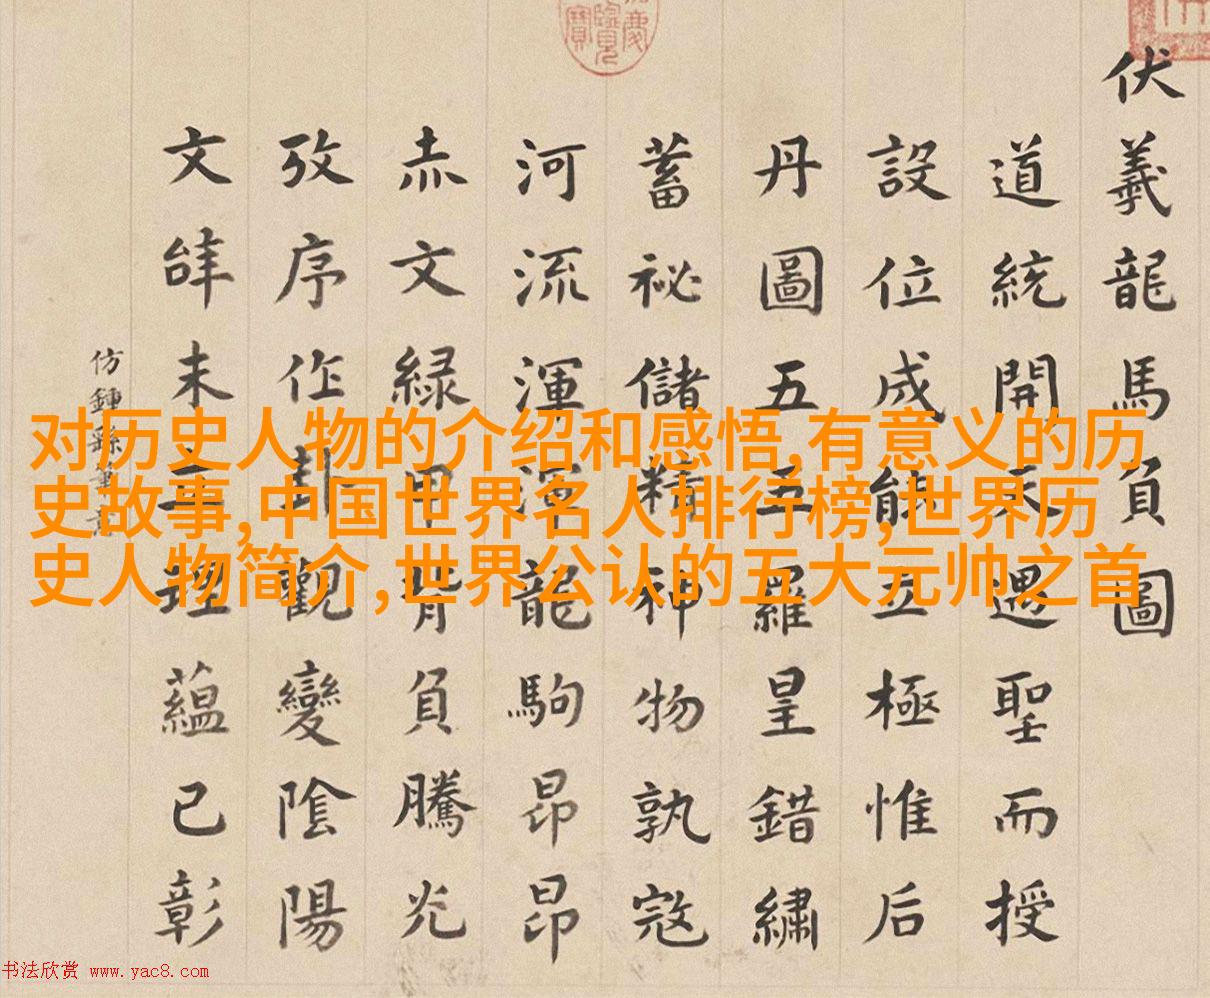 伏羲龍馬負圖
道統開天遇聖而授
設位成能五極惟后
丹圖五羅皇錯繡
蓄祕儲精神物孰寇
河流渾渾龍駒昂昂
赤文緑甲背負騰光
攷序作卦觀變陰陽
文辝未立理蘊已彰
仿鍾繇筆意
慶覽寶
对历史人物的介绍和感悟,有意义的历
史故事,中国世界名人排行榜,世界历
史人物简介,世界公认的五大元帅之首
书法欣赏 www.yac8.com